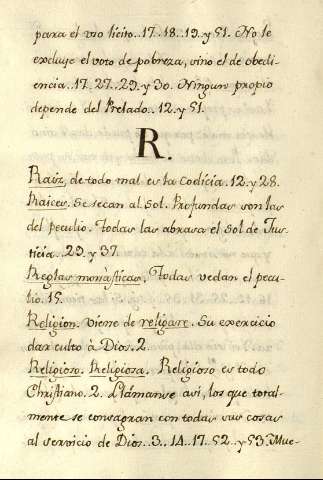 para el vso licito..17..18..19.y 51. No le
excluje el voto de pobreza, sino el de obedi-
encia..17..27..29.y 30. Ningun propio
depende del Prelado..12.y 51.
R.
Raiz, de todo mal es la Codicia.12.y 28.
Raices. Se secan al Sol. Profundas son las
del peculio. Todas las abrasa el Sol de Jus-
ticia..29.y 37.
Reglas monasticas. Todas vedan el pecu-
lio.15.
Religion. Viene de religare. Su exercicio
dar culto à Dios.2.
Religioso. Religiosa. Religioso es todo
Christiano.2. Llámanse así, los que total-
mente se consagran con todas sus cosas
al servicio de Dios..3..14..17..52..y 53. Mue-